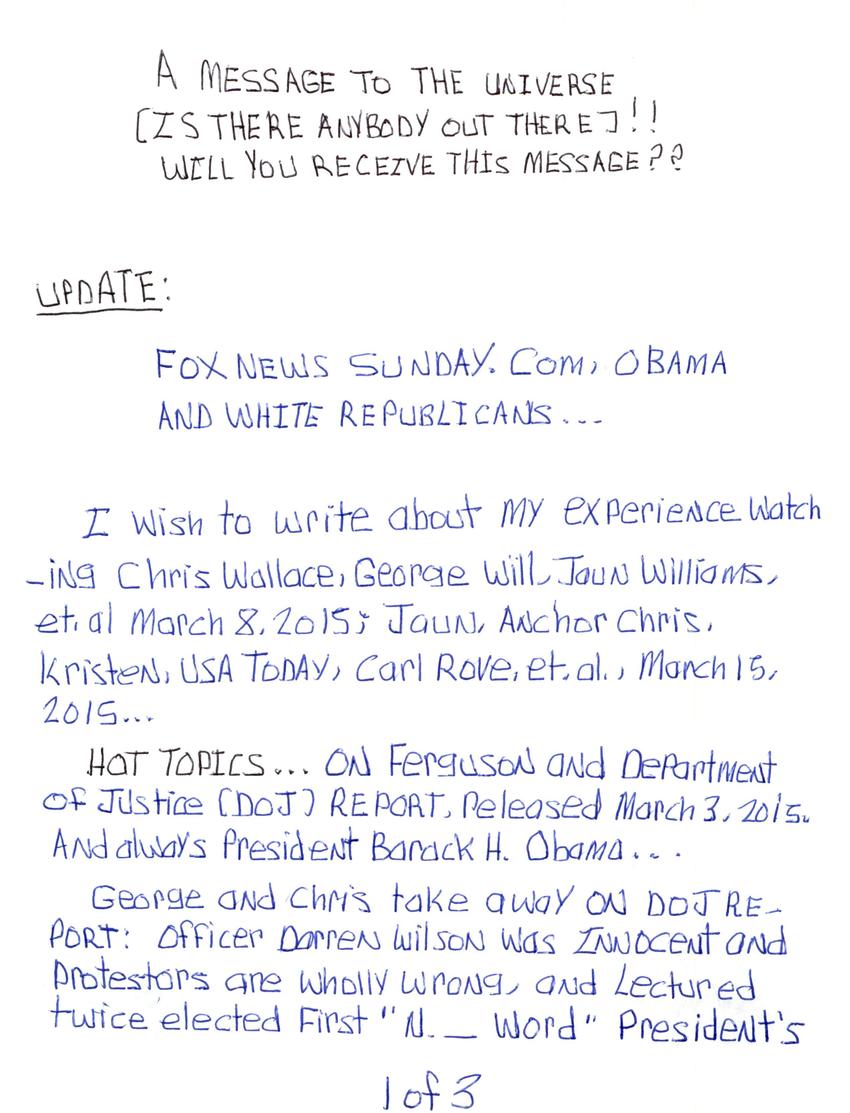 A MESSAGE TO THE UNIVERSE
[IS THERE ANYBODY OUT THERE]!!
WILL YOU RECEIVE THIS MESSAGE??
UPDATE:
FOX NEWS SUNDAY. COM, OBAMA
AND WHITE REPUBLICANS...
I wish to write about my experience watch
-ing Chris Wallace, George Will, Jaun Williams,
et. al March 8, 2015; Jaun, Anchor Chris,
Kristen, USA TODAY, Carl Rove, et. al., March 15,
2015...
HOT TOPICS... ON Ferguson and Department
of Justice [DOJ] REPORT, Released March 3, 2015.
And always President Barack H. Obama...
George and Chris take away ON DOJ RE-
PORT: Officer Darren Wilson was INNOCENT and
protestors are wholly wrong, and Lectured
twice elected First "N.__ Word" President's
1 of 3